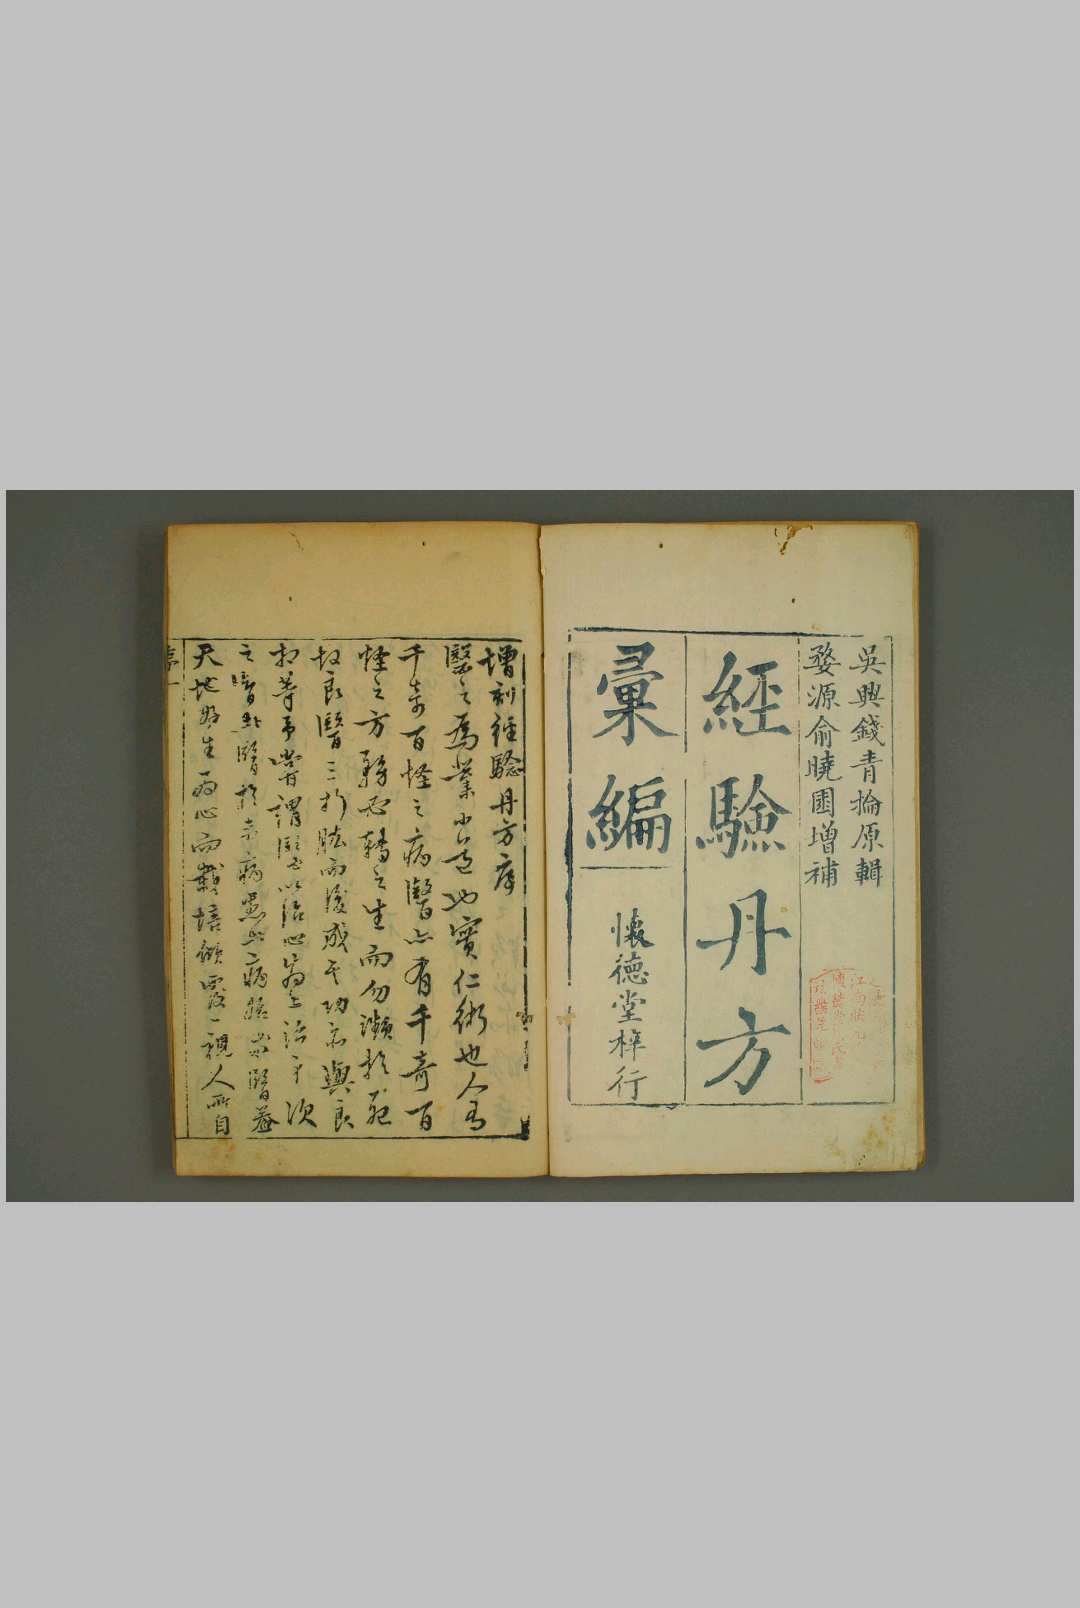 吳興錢青掄原輯
婺源俞曉園增補
經驗丹方
彙編
懷德堂梓行
江南狀元
增刻經驗丹方序
醫之為業小道也實仁術也人有
千奇百怪之病醫亦有千奇百
怪之方務必轉之生而勿瀕於死
故良醫三折肱而後成其功亦與良
相等耳嘗謂醫以治心為上治身次
之
天地好生為心而栽培傾覆一視人所自
序一